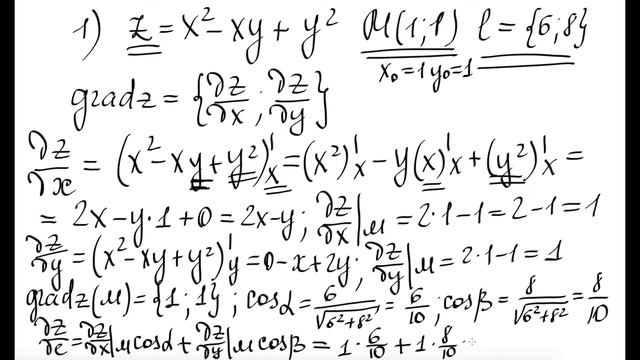 1) z = x² - xy + y² M(1;1) l = {6;8}
x₀=1 y₀=1
grad z = {∂z/∂x ; ∂z/∂y}
∂z/∂x = (x² - xy + y²)'ₓ = (x²)'ₓ - y(x)'ₓ + (y²)'ₓ =
= 2x - y·1 + 0 = 2x - y ; ∂z/∂x|м = 2·1 - 1 = 2 - 1 = 1
∂z/∂y = (x² - xy + y²)'y = 0 - x + 2y ; ∂z/∂y|м = 2·1 - 1 = 1
grad z(м) = {1;1} ; cosα = 6/√(6²+8²) = 6/10 ; cosβ = 8/√(6²+8²) = 8/10
∂z/∂l = ∂z/∂x|м cosα + ∂z/∂y|м cosβ = 1·6/10 + 1·8/10